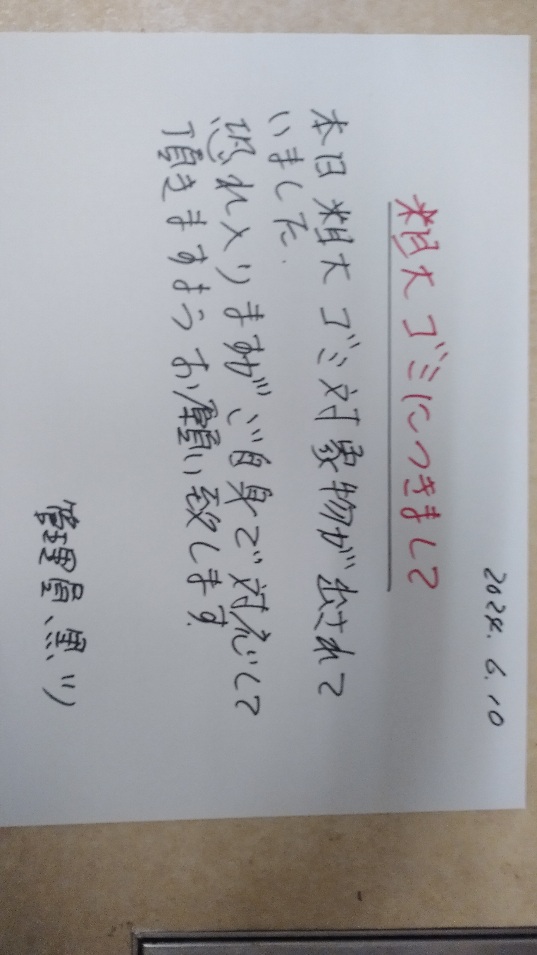 2024. 6. 10
粗大ゴミにつきまして
本日粗大ゴミ対象物が出されて
いました.
恐れ入りますがご自身で対応して
頂きますようお願い致します.
管理員